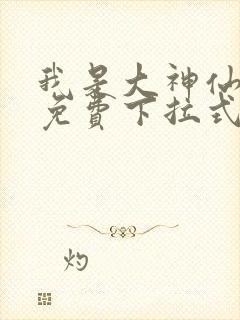 我是大神仙
免費下拉式
灼